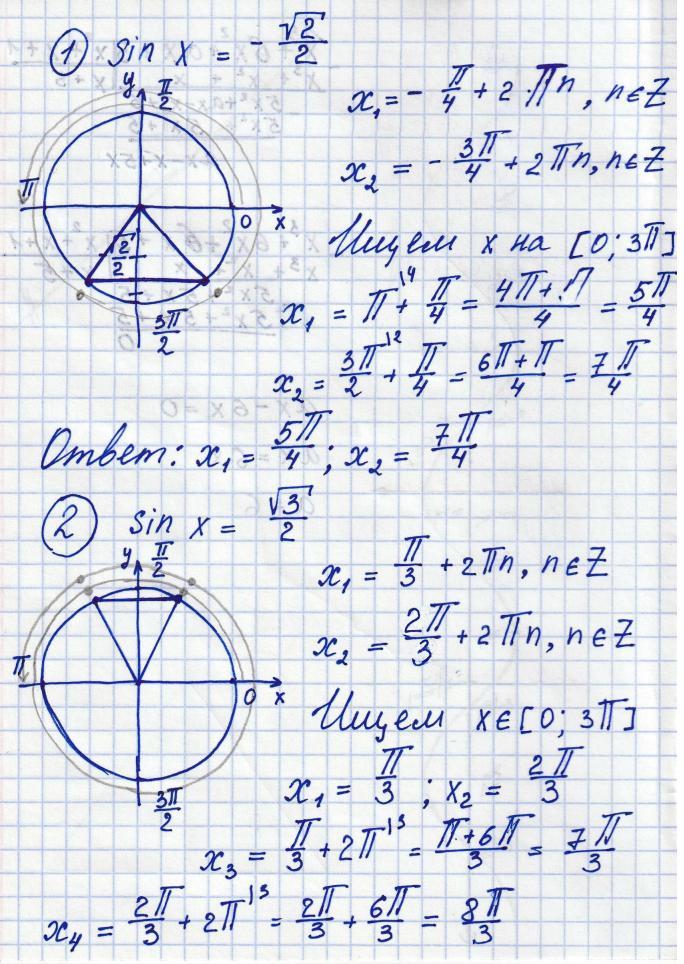 1) sin x = - √2/2
y π/2
x₁ = - π/4 + 2·πn, n∈Z
x₂ = - 3π/4 + 2πn, n∈Z
π 0 x
√2/2
3π/2
Ищем x на [0; 3π]
x₁ = π\4 + π/4 = 4π+π/4 = 5π/4
x₂ = 3π/2\2 + π/4 = 6π+π/4 = 7π/4
Ответ: x₁ = 5π/4; x₂ = 7π/4
2 sin x = √3/2
y π/2
x₁ = π/3 + 2πn, n∈Z
x₂ = 2π/3 + 2πn, n∈Z
π 0 x
3π/2
Ищем x∈[0; 3π]
x₁ = π/3; x₂ = 2π/3
x₃ = π/3 + 2π\3 = π+6π/3 = 7π/3
x₄ = 2π/3 + 2π\3 = 2π/3 + 6π/3 = 8π/3